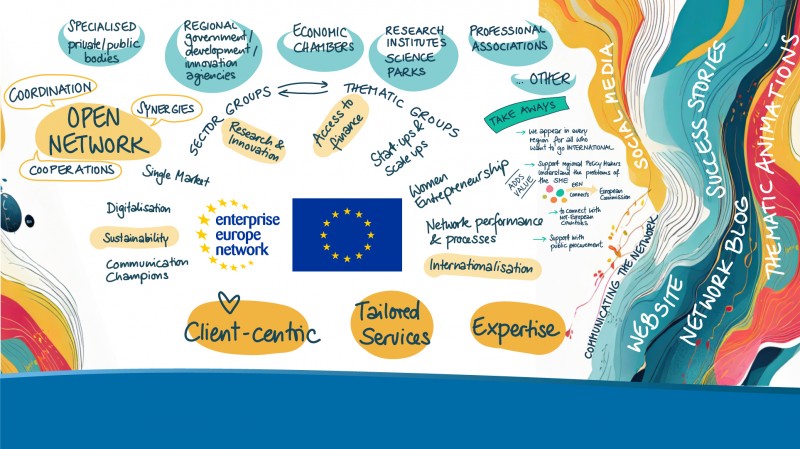 SPECIALISED
private/public
bodies
REGIONAL
government/
development/
innovation
agencies
ECONOMIC
CHAMBERS
RESEARCH
INSTITUTES
SCIENCE
PARKS
PROFESSIONAL
ASSOCIATIONS
... OTHER
COORDINATION
OPEN
NETWORK
SYNERGIES
COOPERATIONS
SECTOR GROUPS
THEMATIC GROUPS
Research &
Innovation
Access to
finance
Start-ups &
Scale ups
Single Market
Digitalisation
Sustainability
Communication
Champions
enterprise
europe
network
Women
Entrepreneurship
Network performance
& processes
Internationalisation
TAKE AWAYS
→ we appear in every
region for all who
want to go INTERNATIONAL
ADDS
VALUE
→ Support regional Policy Makers
understand the problems of
the SME
EEN
connects
European
Commission
→ to connect with
non-european
countries
→ Support with
public procurement
Client-centric
Tailored
Services
Expertise
COMMUNICATING THE NETWORK
SOCIAL MEDIA
WEBSITE
SUCCESS STORIES
NETWORK BLOG
THEMATIC ANIMATIONS